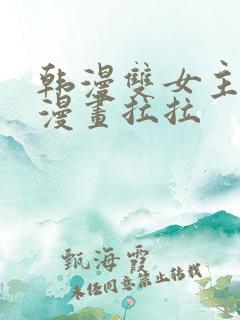 韩漫雙女主
漫畫拉拉
甄海霞
未经同意禁止转载